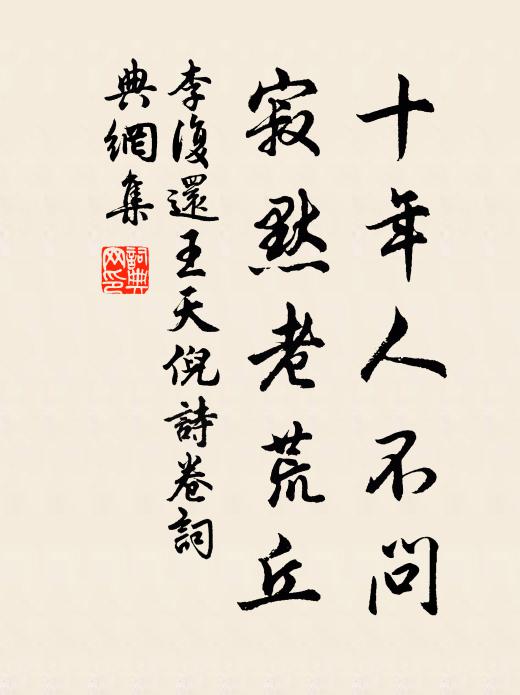 十年人不問
寂默老荒丘
李復還王天倪詩卷詞
典網集
詞典网印